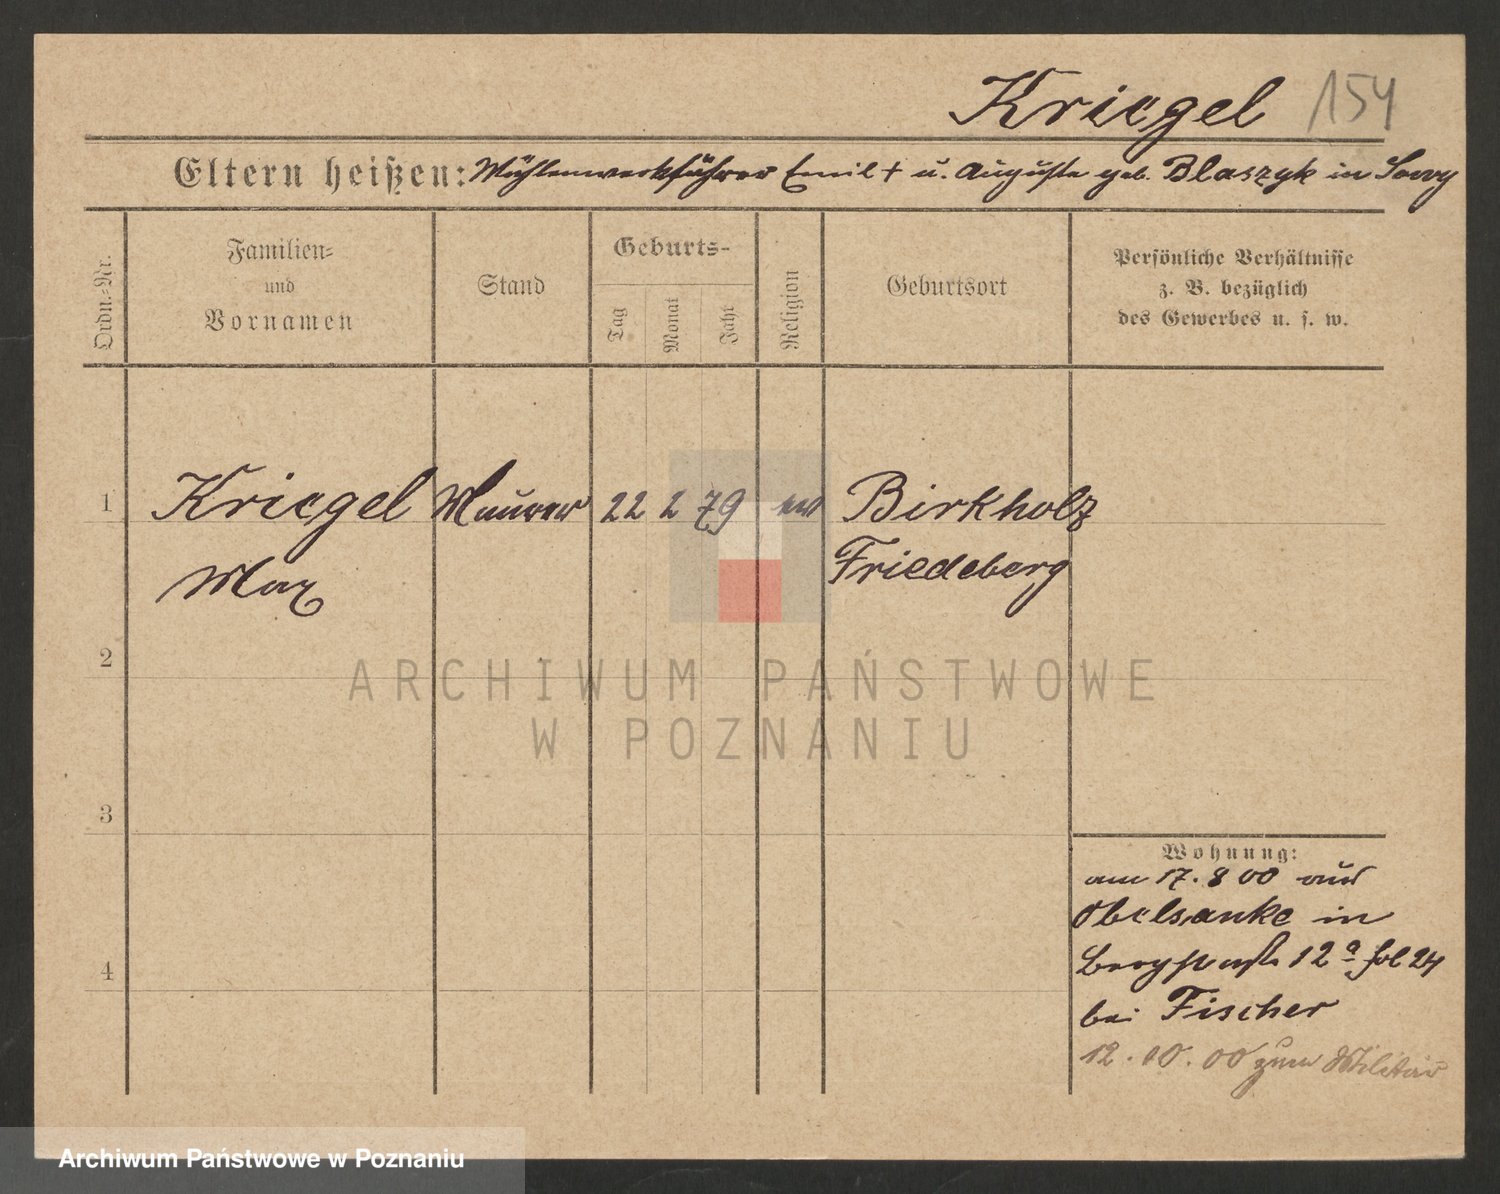 Kriegel 154
Eltern heißen: Mühlenwerkführer Emil + u. Auguste geb. Blaszyk in
Ordn.-Nr.
Familien-
und
Vornamen
Stand
Geburts-
Tag
Monat
Jahr
Religion
Geburtsort
Persönliche Verhältnisse
z. B. bezüglich
des Gewerbes u. s. w.
1 Kriegel Maurer 22 2 79 ev Birkholz
Max Friedeberg
2
ARCHIWUM PAŃSTWOWE
W POZNANIU
3
4
Wohnung:
am 17. 8 00 aus
in
12 a fol 24
bei Fischer
12. 10. 00 zum Militär
Archiwum Państwowe w Poznaniu